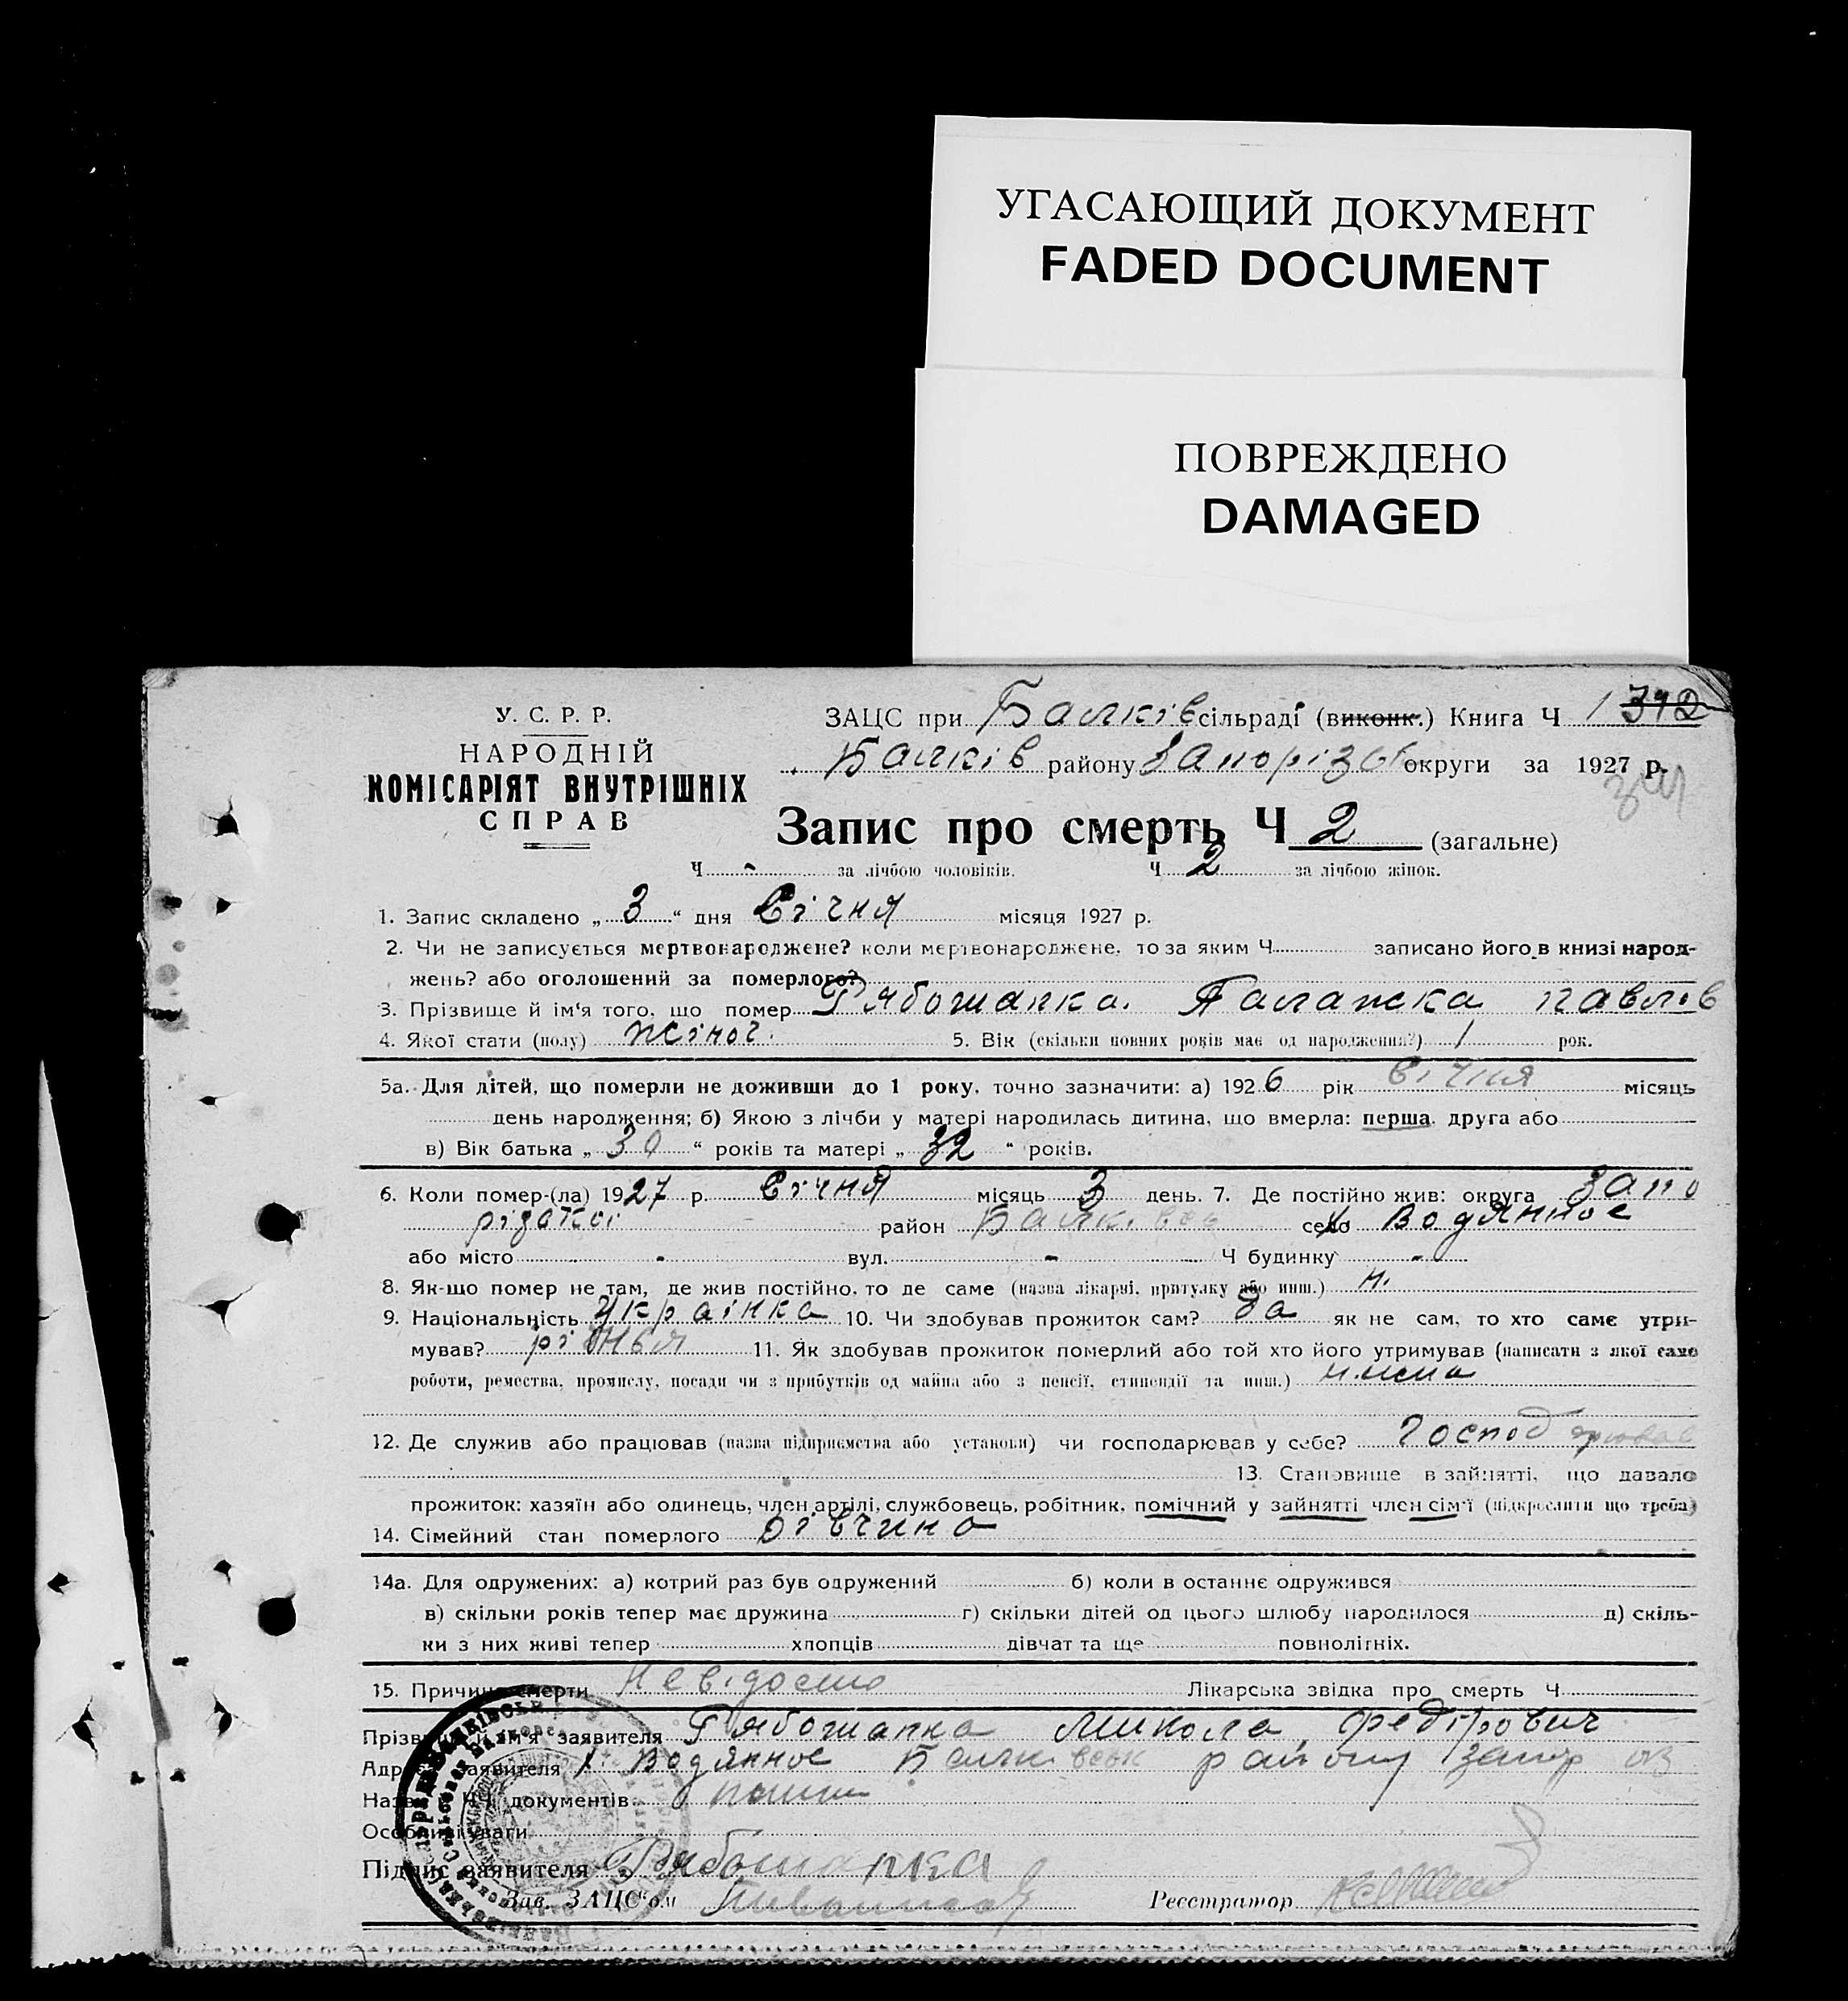 УГАСАЮЩИЙ ДОКУМЕНТ
FADED DOCUMENT
ПОВРЕЖДЕНО
DAMAGED
У. С. Р. Р.
НАРОДНІЙ
КОМІСАРІЯТ ВНУТРІШНІХ
СПРАВ
ЗАЦС при Балків сільраді (виконк.) Книга Ч 1 342
Балків району Запорізьк округи за 1927 р.
Запис про смерть Ч 2 (загальне)
Ч - за лічбою чоловіків. Ч 2 за лічбою жінок.
1. Запис складено „ 3 “ дня Січня місяця 1927 р.
2. Чи не записується мертвонароджене? коли мертвонароджене, то за яким Ч записано його в книзі народ-
жень? або оголошений за померлого?
3. Прізвище й ім'я того, що помер Рябошапка. Палажка Павлів
4. Якої стати (полу) жіноч. 5. Вік (скільки повних років має од народження?) 1 рок.
5а. Для дітей, що померли не доживши до 1 року, точно зазначити: а) 1926 рік Січня місяць
день народження; б) Якою з лічби у матері народилась дитина, що вмерла: перша, друга або
в) Вік батька „ 30 “ років та матері „ 32 “ років.
6. Коли помер-(ла) 1927 р. Січня місяць 3 день. 7. Де постійно жив: округа Запо
різької район Балківськ село Водянное
або місто - вул. - Ч будинку -
8. Як-що помер не там, де жив постійно, то де саме (назва лікарні, притулку або инш.) н.
9. Національність Українка 10. Чи здобував прожиток сам? да як не сам, то хто саме утри-
мував? 11. Як здобував прожиток померлий або той хто його утримував (написати з якої саме
роботи, ремества, промислу, посади чи з прибутків од майна або з пенсії, стипендії та инш.)
12. Де служив або працював (назва підприємства або установи) чи господарював у себе? Господарював
13. Становище в зайнятті, що давало
прожиток: хазяїн або одинець, член артілі, службовець, робітник, помічний у зайнятті член сім'ї (підкреслити що треба)
14. Сімейний стан померлого дівчина
14а. Для одружених: а) котрий раз був одружений б) коли в останнє одружився
в) скільки років тепер має дружина г) скільки дітей од цього шлюбу народилося д) скіль-
ки з них живі тепер хлопців дівчат та ще повнолітніх.
15. Причина смерти Невідомо Лікарська звідка про смерть Ч
Прізвище й ім'я заявителя Рябошапка Микола Федірович
Адреса заявителя х. Водянное Балківськ району Запор
Назва і ЧЧ документів
Особливі уваги
Підпис заявителя Рябошапка
Зав. ЗАЦС'ом Реєстратор